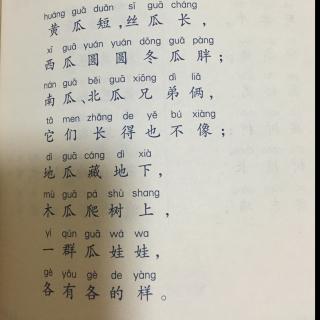 huáng guā duǎn sī guā cháng
黄瓜短,丝瓜长,
xī guā yuán yuán dōng guā pàng
西瓜圆圆冬瓜胖;
nán guā běi guā xiōng dì liǎ
南瓜、北瓜兄弟俩,
tā men zhǎng de yě bú xiàng
它们长得也不像;
dì guā cáng dì xià
地瓜藏地下,
mù guā pá shù shang
木瓜爬树上,
yì qún guā wá wa
一群瓜娃娃,
gè yǒu gè de yàng
各有各的样。